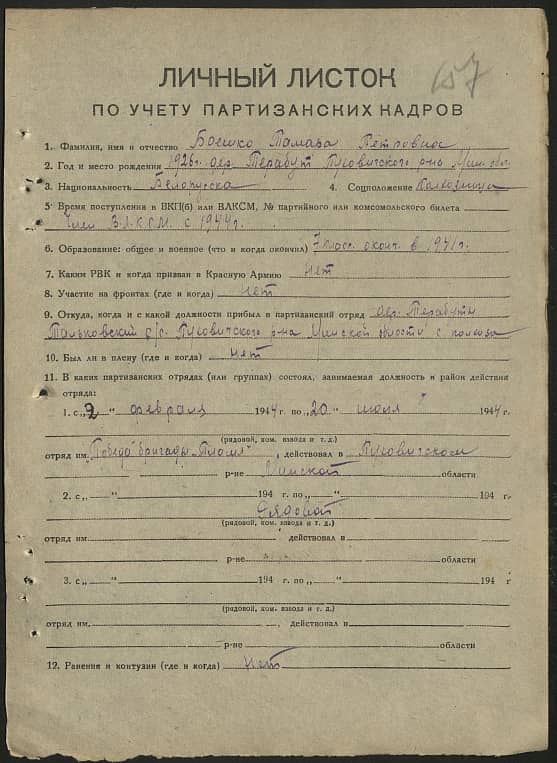 157
ЛИЧНЫЙ ЛИСТОК
ПО УЧЕТУ ПАРТИЗАНСКИХ КАДРОВ
1. Фамилия, имя и отчество Боешко Тамара Петровна
2. Год и место рождения 1926г. дер. Терабут Пуховичского р-на Мин. обл.
3. Национальность Белоруска 4. Соцположение Колхозница
5. Время поступления в ВКП(б) или ВЛКСМ, № партийного или комсомольского билета
Член В.Л.К.С.М. с 1944г.
6. Образование: общее и военное (что и когда окончил) 7 класс. оконч. в 1941г.
7. Каким РВК и когда призван в Красную Армию нет
8. Участие на фронтах (где и когда) нет
9. Откуда, когда и с какой должности прибыл в партизанский отряд дер. Терабуты
Тальковский с/с. Пуховичского р-на Минской области с колхоза
10. Был ли в плену (где и когда) нет
11. В каких партизанских отрядах (или группах) состоял, занимаемая должность и район действия
отряда:
1. с „2" февраля 1944 г. по „20" июля 1944 г.
(рядовой, ком. взвода и т. д.)
отряд им. "Победа" бригады "Пламя", действовал в Пуховичском
р-не Минской области
2. с „ " 194 г. по „ " 194 г.
Рядовой
(рядовой, ком. взвода и т. д.)
отряд им. действовал в
р-не области
3. с „ " 194 г. по „ " 194 г
(рядовой, ком. взвода и т. д.)
отряд им. , действовал в
р-не области
12. Ранения и контузии (где и когда) нет